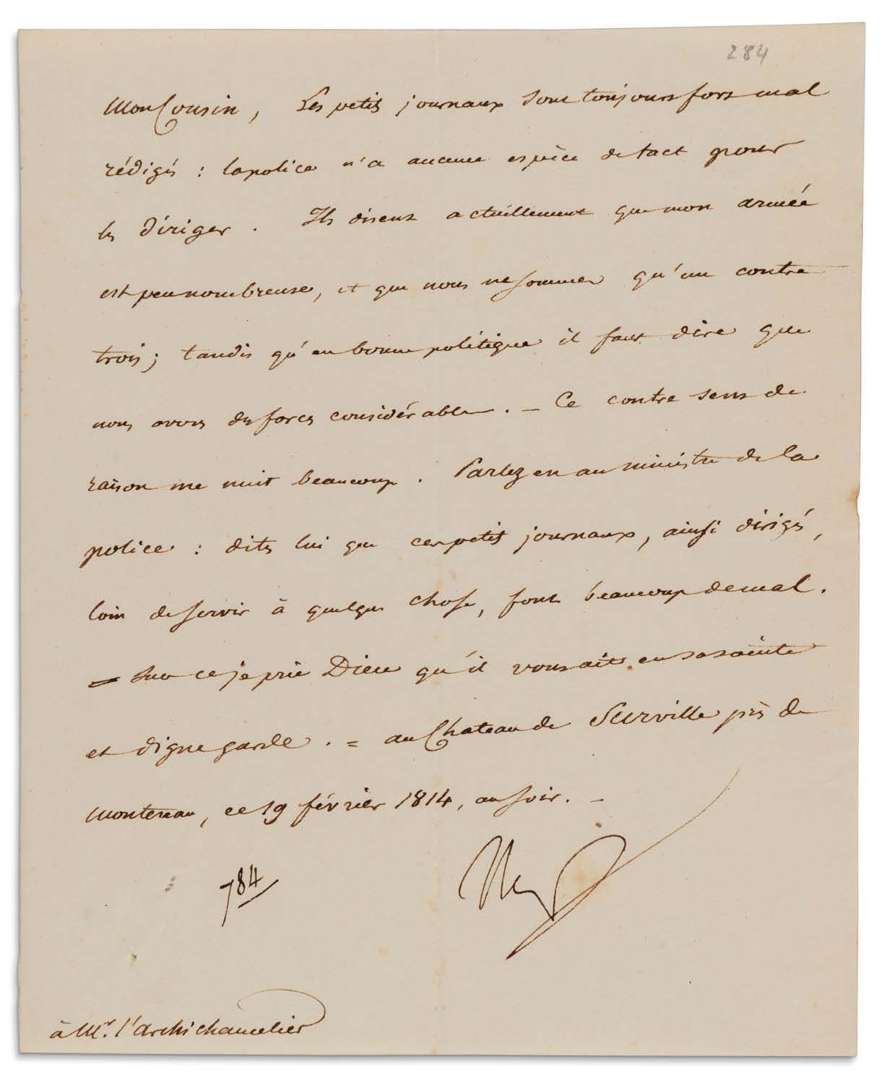 284
Mon Cousin, Les petits journaux sont toujours fort mal
rédigés : la police n'a aucune espèce de tact pour
les diriger. Ils disent actuellement que mon armée
est peu nombreuse, et que nous ne sommes qu'un contre
trois; tandis qu'en bonne politique il faut dire que
nous avons des forces considérables. – Ce contre sens de
raison me nuit beaucoup. Parlez en au ministre de la
police : dites lui que ces petits journaux, ainsi dirigés,
loin de servir à quelque chose, font beaucoup de mal.
= Sur ce je prie Dieu qu'il vous ait en sa sainte
et digne garde. = au Chateau de Surville près de
Montereau, ce 19 février 1814, au soir. –
784
Nap
à Mr. l'archichancelier